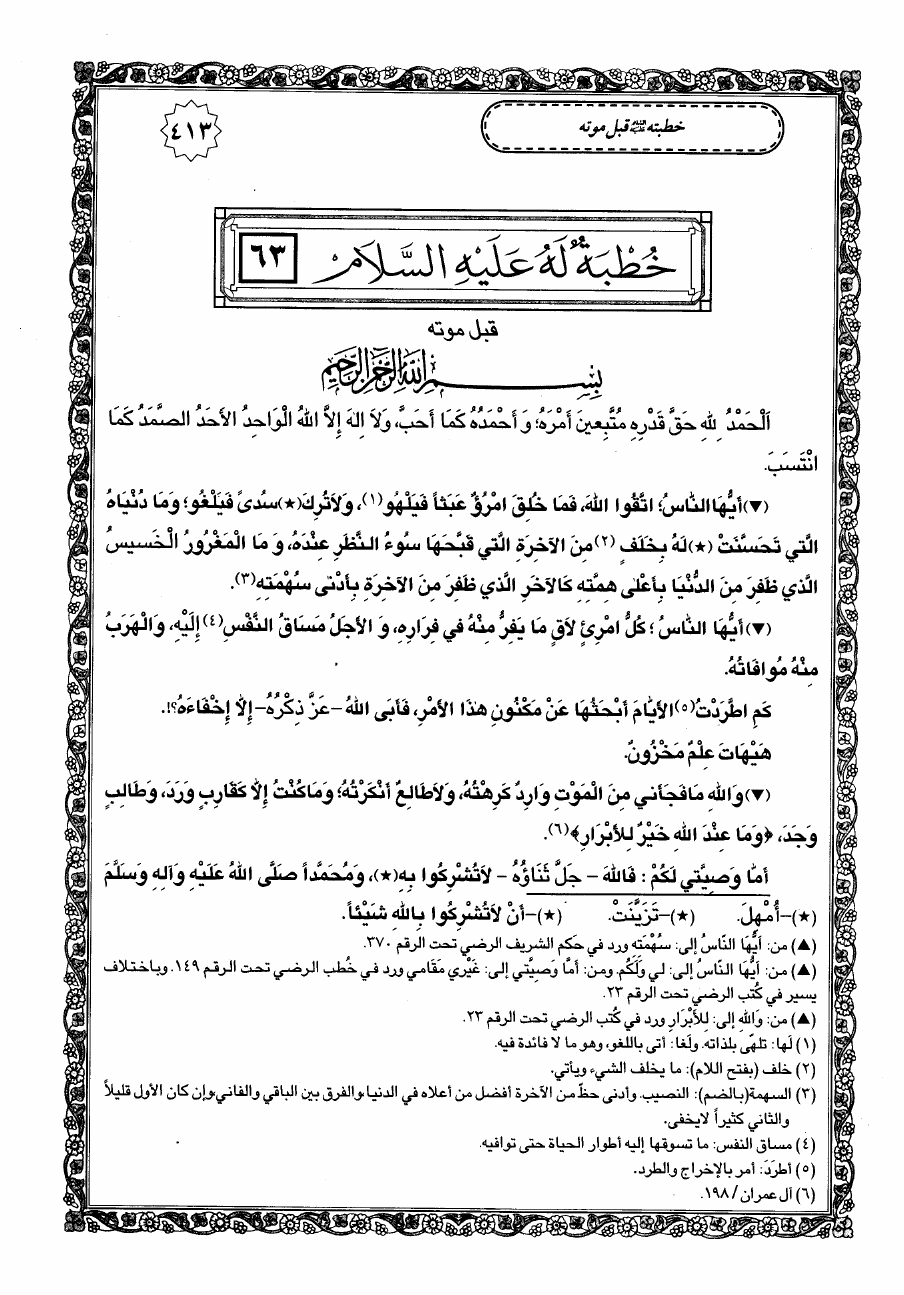 ٤١٣
خطبته عليه السلام قبل موته
خُطْبَةٌ لَهُ عَلَيْهِ السَّلاَمُ ٦٣
قبل موته
بِسْمِ اللهِ الرَّحْمٰنِ الرَّحِيمِ
اَلْحَمْدُ لِلهِ حَقَّ قَدْرِهِ مُتَّبِعينَ أَمْرَهُ؛ وَ أَحْمَدُهُ كَمَا أَحَبَّ، وَلاَ اِلهَ إِلاَّ اللهُ الْوَاحِدُ الأَحَدُ الصَّمَدُ كَمَا
انْتَسَبَ.
(▼) أَيُّهَا النَّاسُ؛ اتَّقُوا اللهَ، فَمَا خُلِقَ امْرُؤٌ عَبَثاً فَيَلْهُو(١)، وَلاَتُرِكَ(★) سُدىً فَيَلْغُو؛ وَمَا دُنْيَاهُ
الَّتي تَحَسَّنَتْ (★) لَهُ بِخَلَفٍ (٢) مِنَ الآخِرَةِ الَّتي قَبَّحَهَا سُوءُ النَّظَرِ عِنْدَهُ، وَ مَا الْمَغْرُورُ الْخَسيسُ
الَّذي ظَفِرَ مِنَ الدُّنْيَا بِأَعْلى هِمَّتِهِ كَالآخَرِ الَّذي ظَفِرَ مِنَ الآخِرَةِ بِأَدْنى سُهْمَتِهِ(٣).
(▼) أَيُّهَا النَّاسُ؛ كُلُّ امْرِئٍ لاَقٍ مَا يَفِرُّ مِنْهُ في فِرَارِهِ، وَ الأَجَلُ مَسَاقُ النَّفْسِ(٤) إِلَيْهِ، وَالْهَرَبُ
مِنْهُ مُوافَاتُهُ.
كَمِ اطَّرَدْتُ(٥) الأَيَّامَ أَبْحَثُهَا عَنْ مَكْنُونِ هذَا الأَمْرِ، فَأَبَى اللهُ -عَزَّ ذِكْرُهُ- إِلاَّ إِخْفَاءَهُ؟!.
هَيْهَاتَ عِلْمٌ مَخْزُونٌ.
(▼) وَاللهِ مَا فَجَأَني مِنَ الْمَوْتِ وَارِدٌ كَرِهْتُهُ، وَلاَطَالِعٌ أَنْكَرْتُهُ؛ وَمَاكُنْتُ إِلاَّ كَقَارِبٍ وَرَدَ، وَطَالِبٍ
وَجَدَ، ﴿وَمَا عِنْدَ اللهِ خَيْرٌ لِلأَبْرَارِ﴾(٦).
أَمَّا وَصِيَّتي لَكُمْ: فَاللهَ - جَلَّ ثَنَاؤُهُ - لاَتُشْرِكُوا بِهِ(★)، وَمُحَمَّداً صَلَّى اللهُ عَلَيْهِ وَآلِهِ وَسَلَّمَ
(★)-أُمْهِلَ. (★)-تَزَيَّنَتْ. (★)-أَنْ لاَتُشْرِكُوا بِاللهِ شَيْئاً.
(▲) من: أَيُّهَا النَّاسُ إلى: سُهْمَتِهِ ورد في حكم الشريف الرضي تحت الرقم ٣٧٠.
(▲) من: أَيُّهَا النَّاسُ إلى: لي وَلَكُم. ومن: أَمَّا وَصِيَّتي إلى: غَيْري مَقَامي ورد في خُطب الرضي تحت الرقم ١٤٩. وباختلاف
يسير في كتب الرضي تحت الرقم ٢٣.
(▲) من: وَاللهِ إلى: لِلأَبْرَارِ ورد في كُتب الرضي تحت الرقم ٢٣.
(١) لَها: تلهّى بلذاته. ولَغا: أتى باللغو، وهو ما لا فائدة فيه.
(٢) خلف (بفتح اللام): ما يخلف الشيء ويأتي.
(٣) السهمة(بالضم): النصيب. وأدنى حظّ من الآخرة أفضل من أعلاه في الدنيا، والفرق بين الباقي والفاني، وإن كان الأول قليلاً
والثاني كثيراً لايخفى.
(٤) مساق النفس: ما تسوقها إليه أطوار الحياة حتى توافيه.
(٥) أطرَدَ: أمر بالإخراج والطرد.
(٦) آل عمران/ ١٩٨.